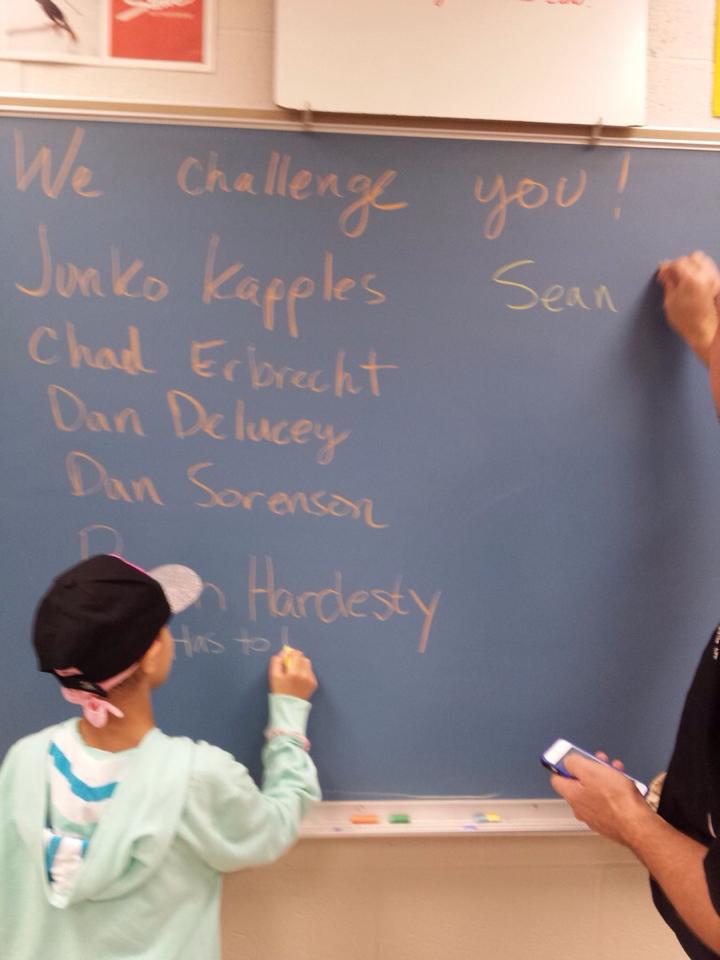 We challenge you!
Junko Kapples Sean
Chad Erbrecht
Dan Delucey
Dan Sorenson
Hardesty
Has to